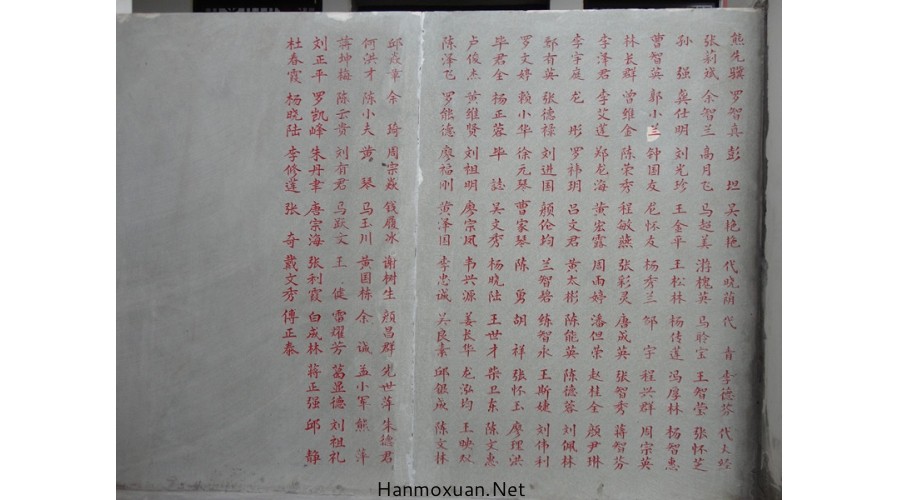 熊先骥 罗智真 彭坦 吴艳艳 代晓荫 代青 李德芬 代大经
张莉斌 余智兰 高月飞 马超美 游槐英 马聆宝 王智莹 张怀芝
孙强 龚仕明 刘光珍 王金平 王松林 杨传莲 冯厚林 杨智惠
曹智英 郭小兰 钟国友 尼怀友 杨秀兰 邹宇 程兴群 周宗英
林长群 曾维金 陈荣秀 程敏燕 张彩灵 唐成英 张智秀 蒋智芬
李泽君 李艾莲 郑龙海 黄宏霖 周雨婷 潘但荣 赵桂全 颜尹琳
李宇庭 龙彤 罗祎玥 吕文君 黄太彬 陈能英 陈德蓉 刘佩林
鄢有英 张德禄 刘进国 颜伦均 兰智碧 练智永 王斯婕 刘伟利
罗文婷 赖小华 徐元琴 曹家琴 陈勇 胡祥 张怀玉 廖理洪
毕君金 杨正蓉 毕誌 吴文秀 杨晓陆 王世才 柴卫东 陈文惠
卢俊杰 黄维贤 刘祖明 廖宗凤 韦兴源 姜长华 龙泓均 王映双
陈泽飞 罗能德 廖福刚 黄泽国 李忠诚 吴良素 邱银成 陈文林
邱焱章 余琦 周宗焱 钱履冰 谢树生 颜昌群 先世萍 朱德君
何洪才 陈小夫 黄琴 马玉川 黄国栋 余诚 孟小军 熊萍
蒋坤梅 陈云贵 刘有君 马跃文 王健 雷耀芳 葛显德 刘祖礼
刘正平 罗凯峰 朱丹聿 唐宗海 张利霞 白成林 蒋正强 邱静
杜春霞 杨晓陆 李修莲 张奇 戴文秀 傅正泰
Hanmoxuan.Net